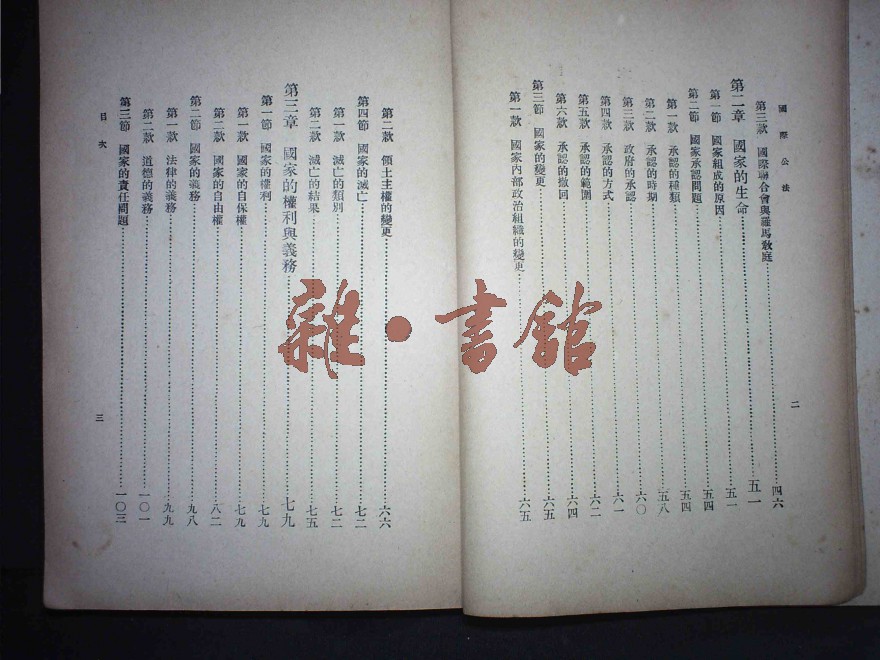 國際公法
第三款 國際聯合會與羅馬敎庭……四六
第二章 國家的生命……五一
第一節 國家組成的原因……五一
第二節 國家承認問題……五四
第一款 承認的種類……五四
第二款 承認的時期……五八
第三款 政府的承認……六〇
第四款 承認的方式……六一
第五款 承認的範圍……六二
第六款 承認的撤回……六四
第三節 國家的變更……六五
第一款 國家內部政治組織的變更……六五
二
第二款 領土主權的變更……六六
第四節 國家的滅亡……七二
第一款 滅亡的類別……七二
第二款 滅亡的結果……七五
第三章 國家的權利與義務……七九
第一節 國家的權利……七九
第一款 國家的自保權……七九
第二款 國家的自由權……八二
第二節 國家的義務……九八
第一款 法律的義務……九九
第二款 道德的義務……一〇一
第三節 國家的責任問題……一〇三
目次
三
雜·書館